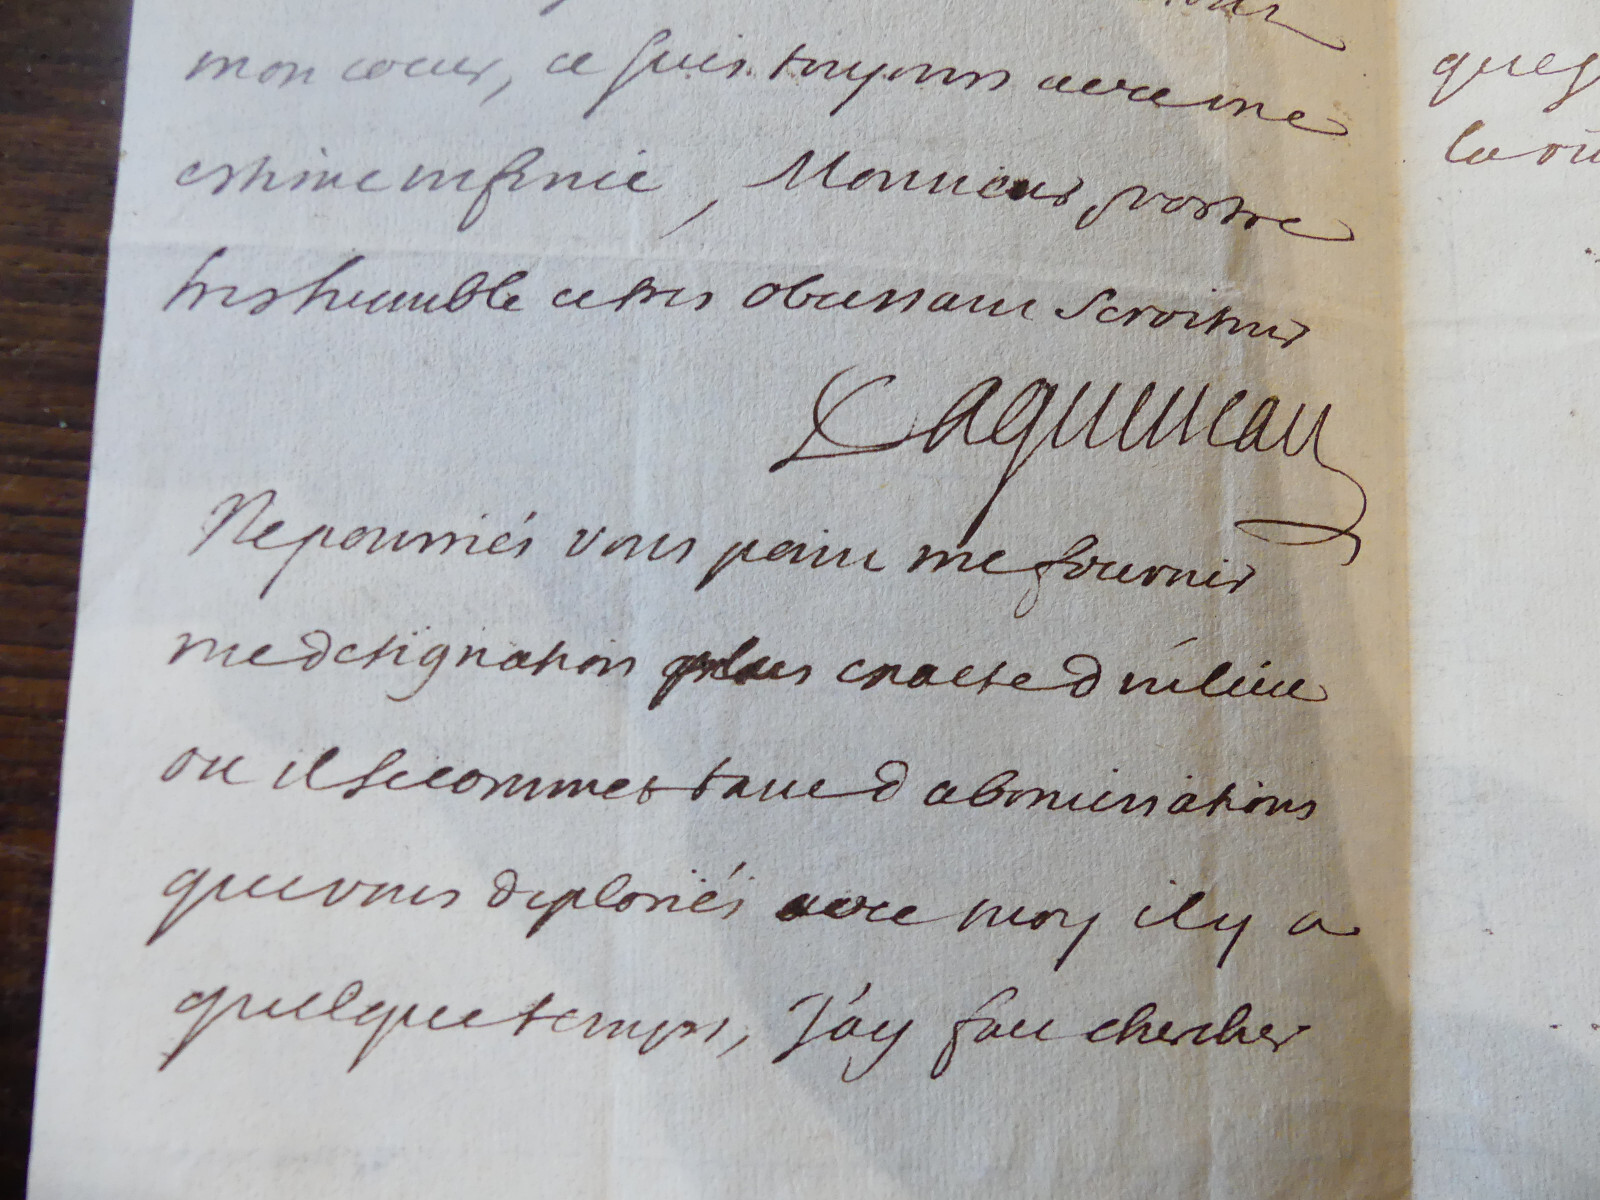 mon coeur, ie suis toujours avec une
estime infinie, Monsieur, vostre
tres humble et tres obeissant Serviteur
Daguesseau
Ne pourriés vous point me fournir
une designation plus exacte d'un lieu
ou il se commet tant d'abominations
que vous deploriés avec moy il y a
quelque temps, J'ay fait chercher
que
la ou